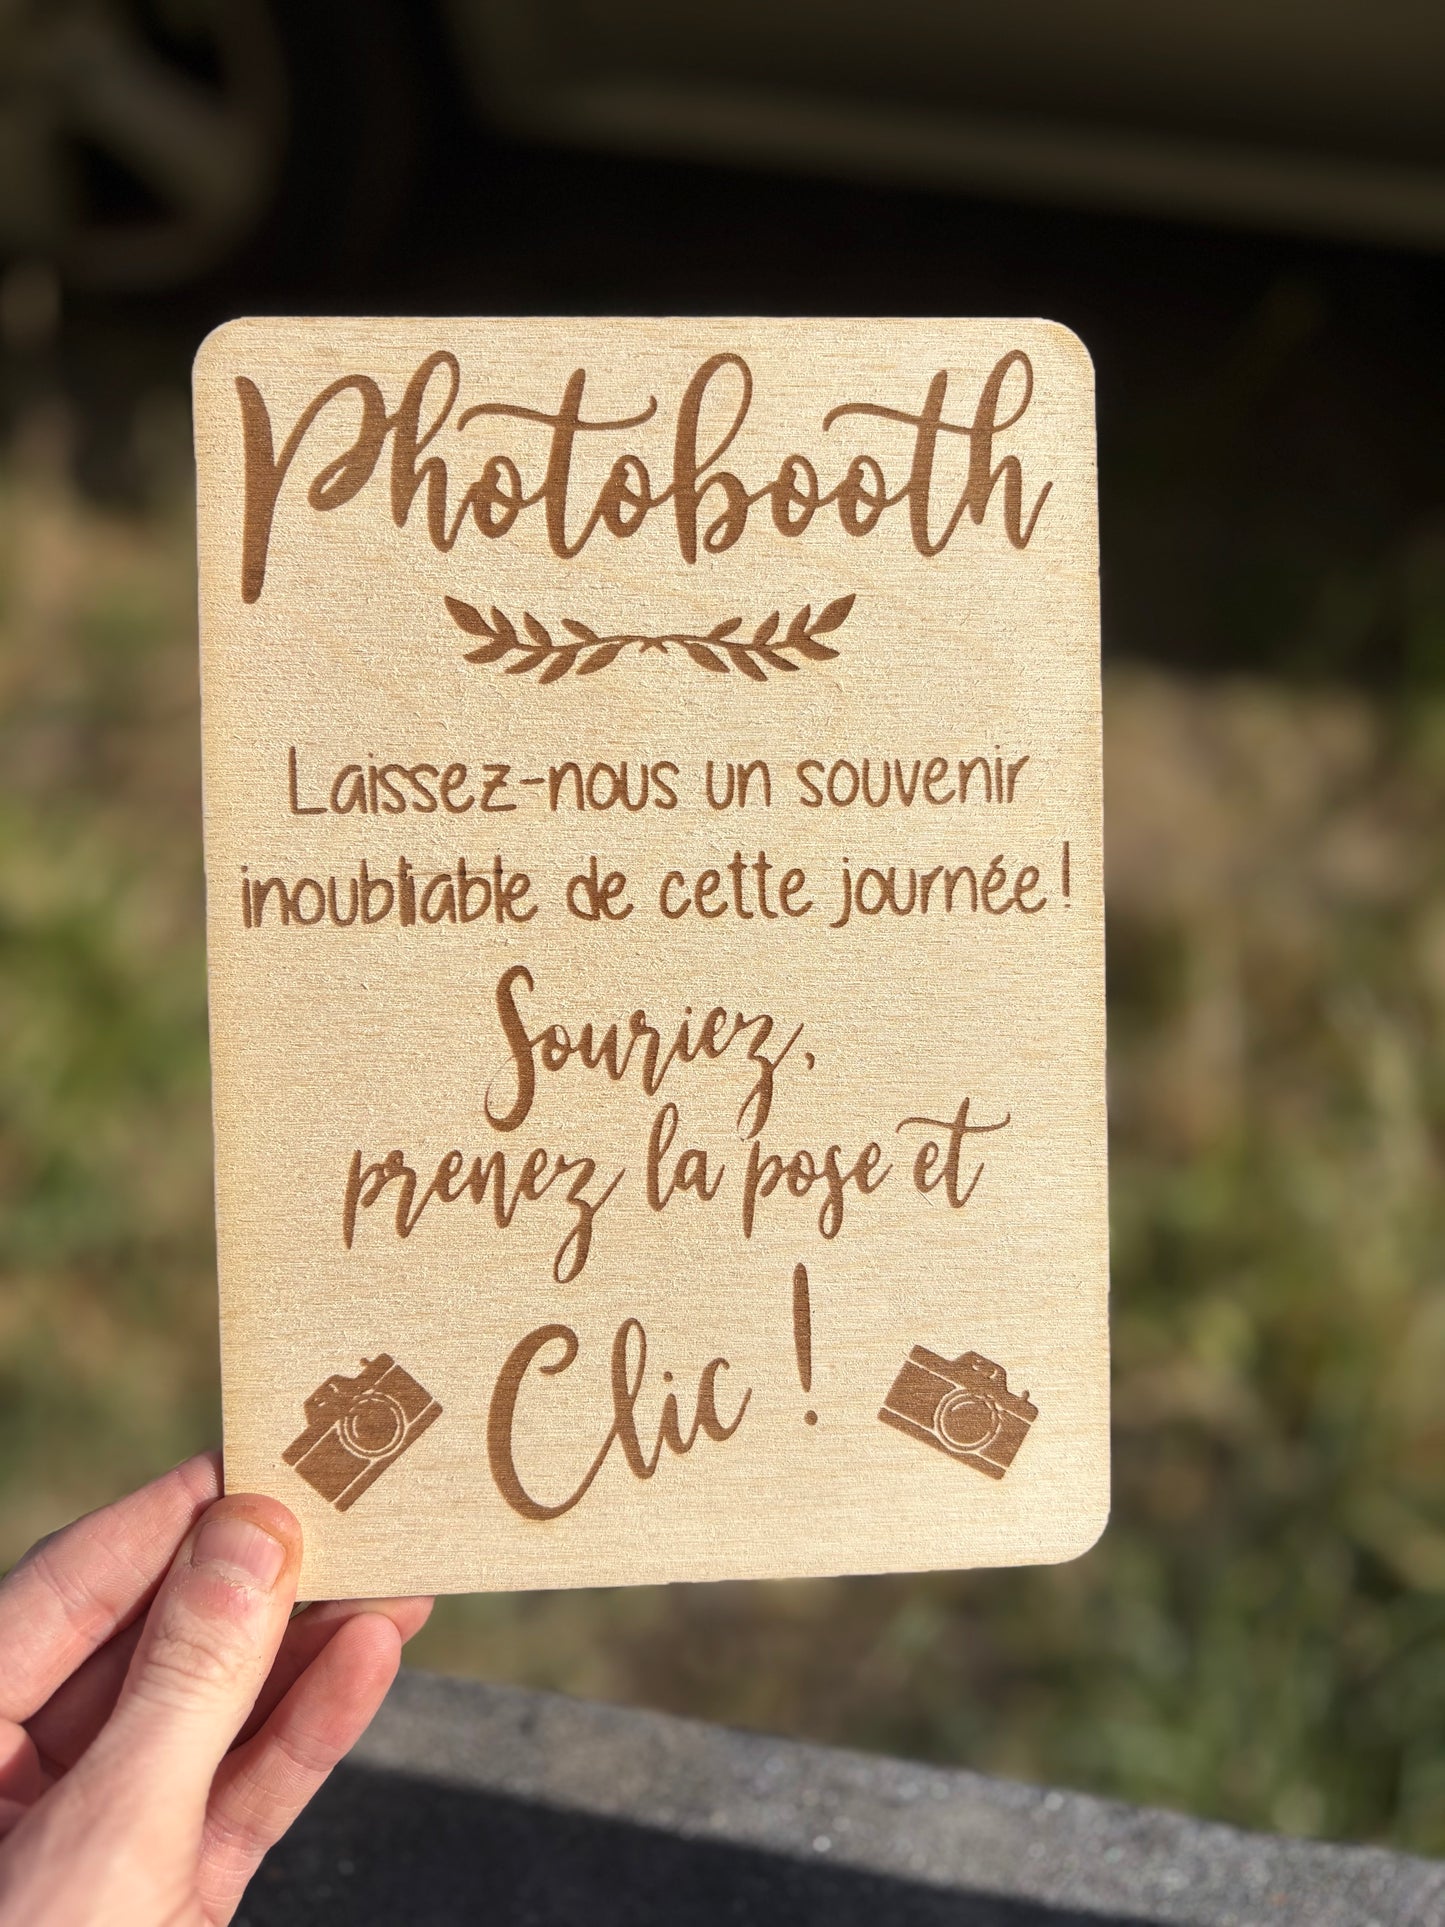 Photobooth
Laissez-nous un souvenir
inoubliable de cette journée !
Souriez,
prenez la pose et
Clic !